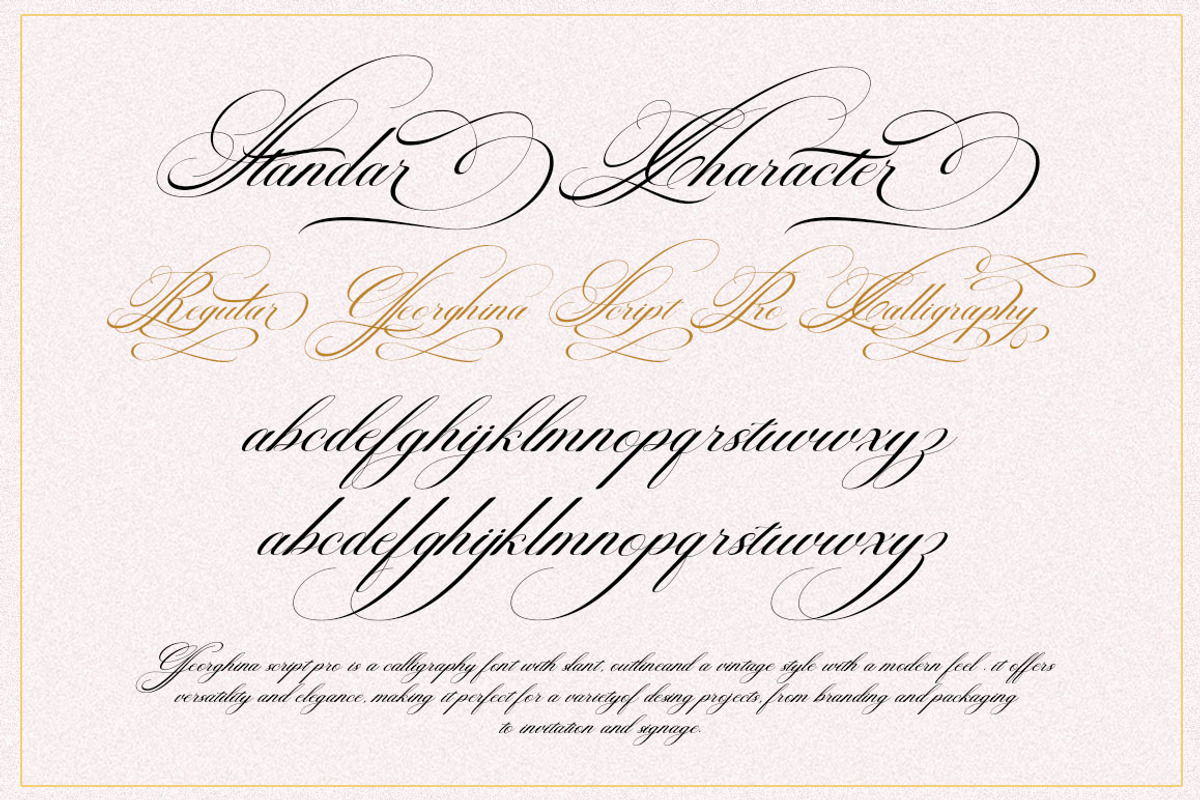 Standar Character
Regular Georghina Script Pro Calligraphy
abcdefghijklmnopqrstuvwxyz
abcdefghijklmnopqrstuvwxyz
Georghina script pro is a calligraphy font with slant, outlineand a vintage style with a modern feel . it offers
versatility and elegance, making it perfect for a varietyof desing projects, from branding and packaging
to invitation and signage.